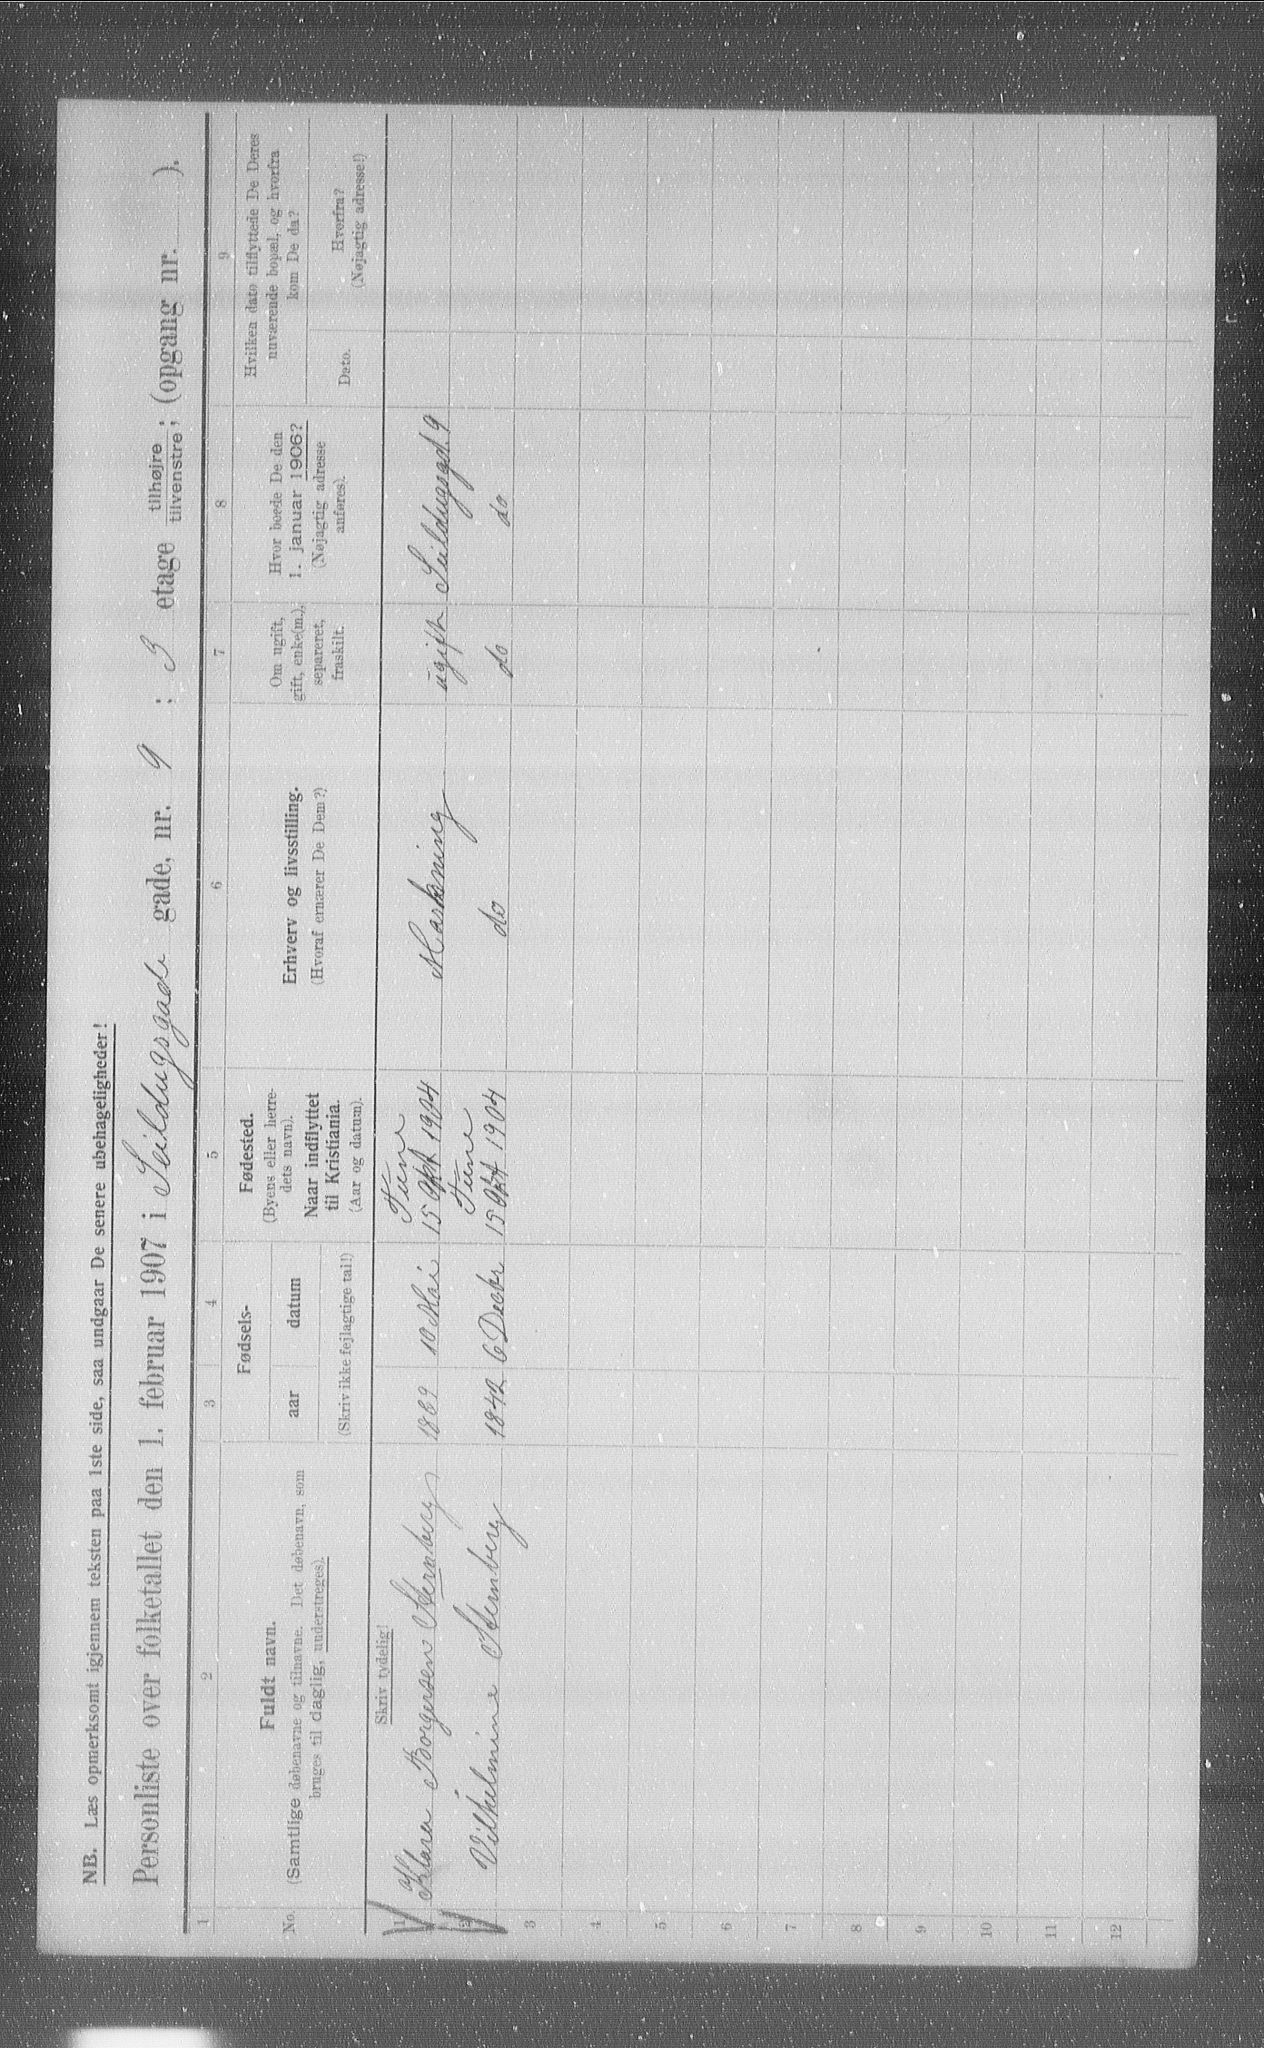 NB. Læs opmerksomt igjennem teksten paa 1ste side, saa undgaar De senere ubehageligheder!
Personliste over folketallet den 1. februar 1907 i Seildugsgade gade, nr. 9 : 3 etage tilhøjre / tilvenstre ; (opgang nr. ).
1 2 3 4 5 6 7 8 9
No.
Fuldt navn.
(Samtlige døbenavne og tilnavne. Det døbenavn, som
bruges til daglig, understreges).
Fødsels-
aar datum
(Skriv ikke fejlagtige tal!)
Fødested.
(Byens eller herre-
dets navn).
Naar indflyttet
til Kristiania.
(Aar og datum).
Erhverv og livsstilling.
(Hvoraf ernærer De Dem?)
Om ugift,
gift, enke(m.),
separeret,
fraskilt.
Hvor boede De den
1. januar 1906?
(Nøjagtig adresse
anføres).
Hvilken dato tilflyttede De Deres
nuværende bopæl, og hvorfra
kom De da?
Dato.
Hvorfra?
(Nøjagtig adresse!)
Skriv tydelig!
Tune
1 Klara Borgersen Sternberg 1869 10 Mai 15 Okt 1904 ugift Seildugsgd. 9
Tune
2 Vilhelmine Sternberg 1842 6 Decbr 15 Okt 1904 do do do
3
4
5
6
7
8
9
10
11
12